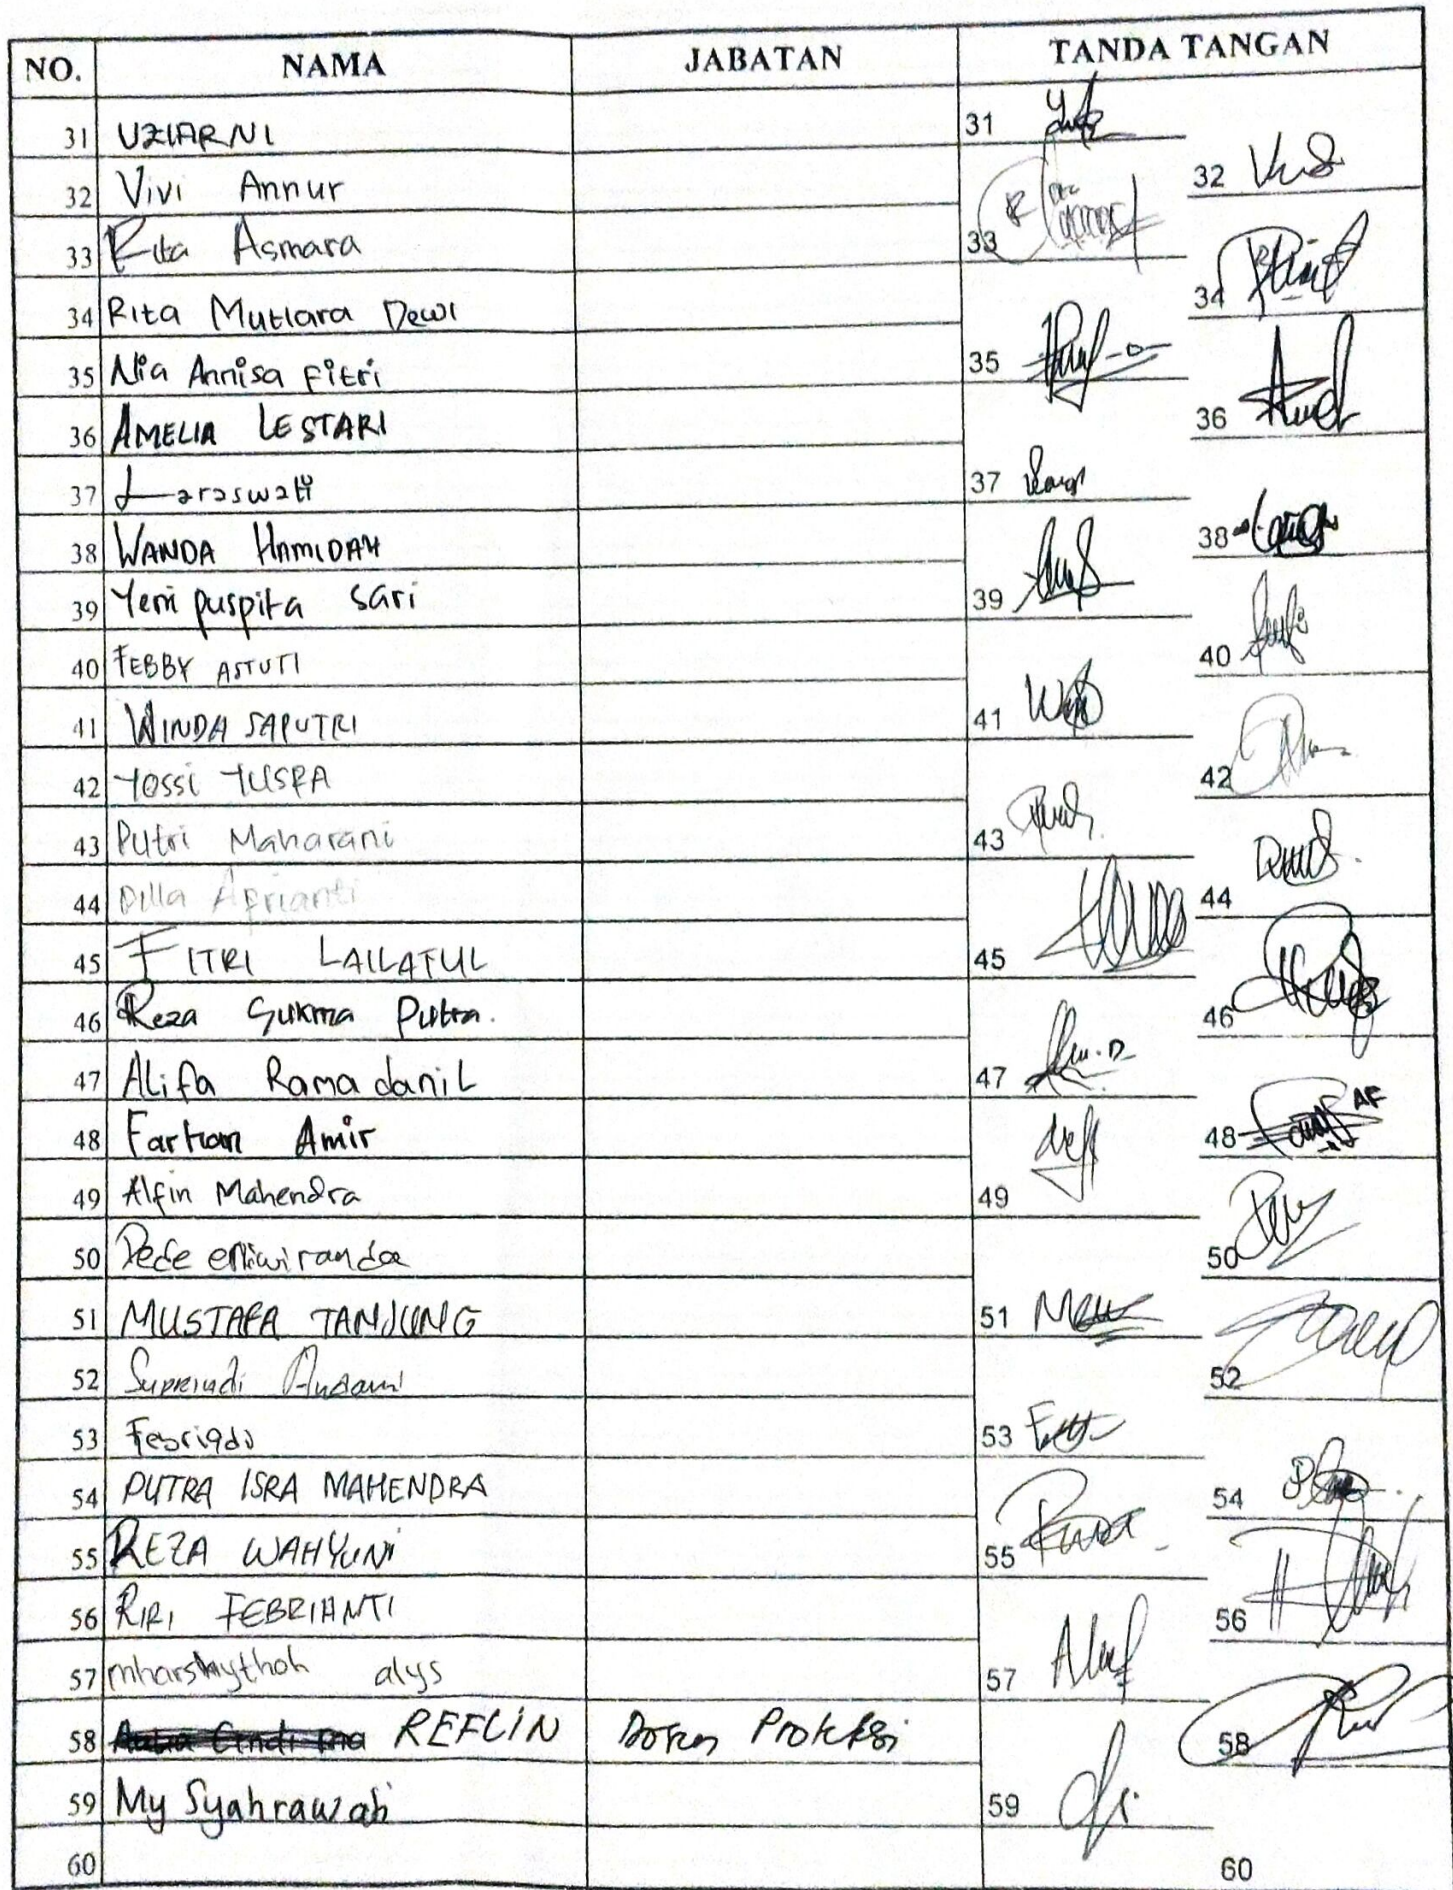 NO. NAMA JABATAN TANDA TANGAN
31 UZIARNI 31
32 Vivi Annur 32
33 Rita Asmara 33
34 Rita Mutiara Dewi 34
35 Nia Annisa Fitri 35
36 AMELIA LESTARI 36
37 Laraswati 37
38 WANDA HAMIDAH 38
39 Yeni puspita sari 39
40 FEBBY ASTUTI 40
41 WINDA SAPUTRI 41
42 Yossi YUSRA 42
43 Putri Maharani 43
44 Dilla Aprianti 44
45 FITRI LAILATUL 45
46 Reza Sukma Putra. 46
47 Alifa Ramadanil 47
48 Farhan Amir 48
49 Alfin Mahendra 49
50 Dede 50
51 MUSTAFA TANJUNG 51
52 52
53 53
54 PUTRA ISRA MAHENDRA 54
55 REZA WAHYUNI 55
56 RIRI FEBRIANTI 56
57 alys 57
58 REFLIN Dosen Proteksi 58
59 My Syahrawati 59
60 60